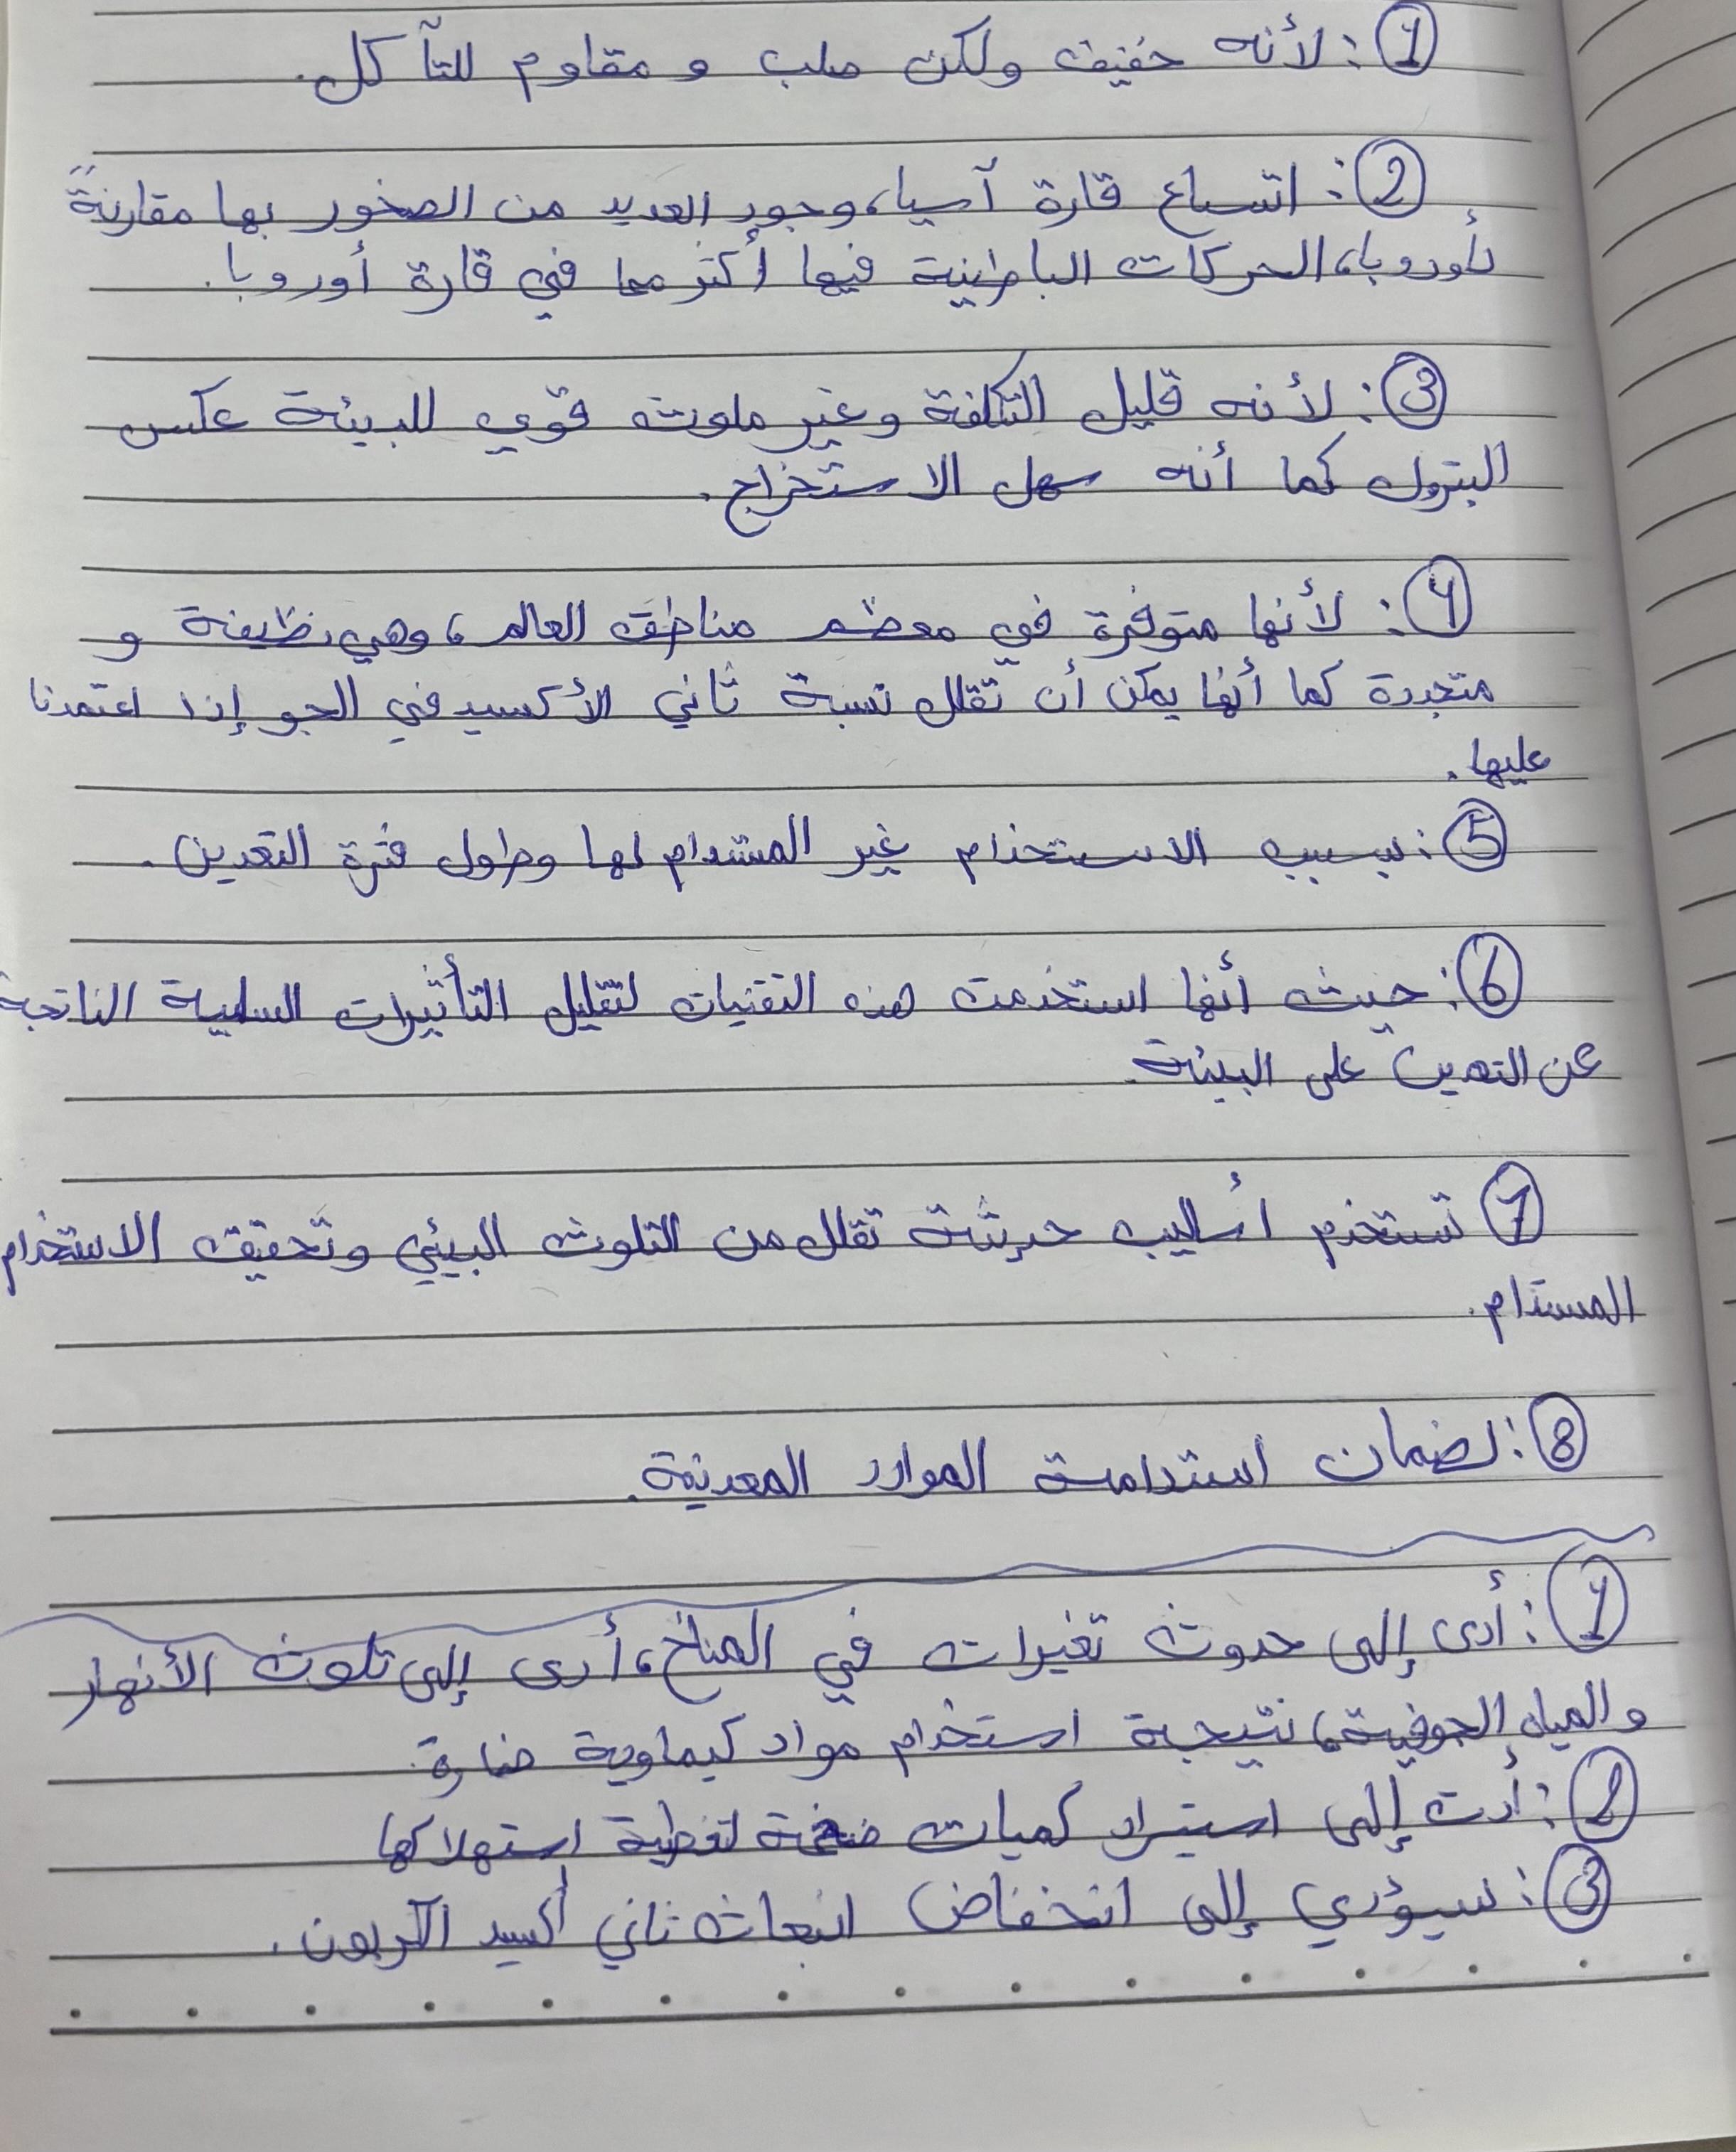 ① : لأنه خفيف ولكن صلب و مقاوم للتآكل.
② : اتساع قارة آسيا، وجود العديد من الصخور بها مقارنةً
بأوروبا، الحركات الباطنية فيها أكثر مما في قارة أوروبا.
③ : لأنه قليل التكلفة وغير ملوث قوي للبيئة عكس
البترول كما أنه سهل الاستخراج.
④ : لأنها متوفرة في معظم مناطق العالم، وهي نظيفة و
متجددة كما أنها يمكن أن تقلل نسبة ثاني الأكسيد في الجو إذا اعتمدنا
عليها.
⑤ : بسبب الاستخدام غير المستدام لها وطول فترة التعدين.
⑥ : حيث أنها استخدمت هذه التقنيات لتقليل التأثيرات السلبية الناتجة
عن التعدين على البيئة.
⑦ تستخدم أساليب حديثة تقلل من التلوث البيئي وتحقيق الاستخدام
المستدام.
⑧ : لضمان استدامة الموارد المعدنية.
① : أدى إلى حدوث تغيرات في المناخ، أدى إلى تلوث الأنهار
والمياه الجوفية، نتيجة استخدام مواد كيماوية ضارة.
② : أدت إلى استيراد كميات ضخمة لتغطية استهلاكها
③ : سيؤدي إلى انخفاض انبعاث ثاني أكسيد الكربون.